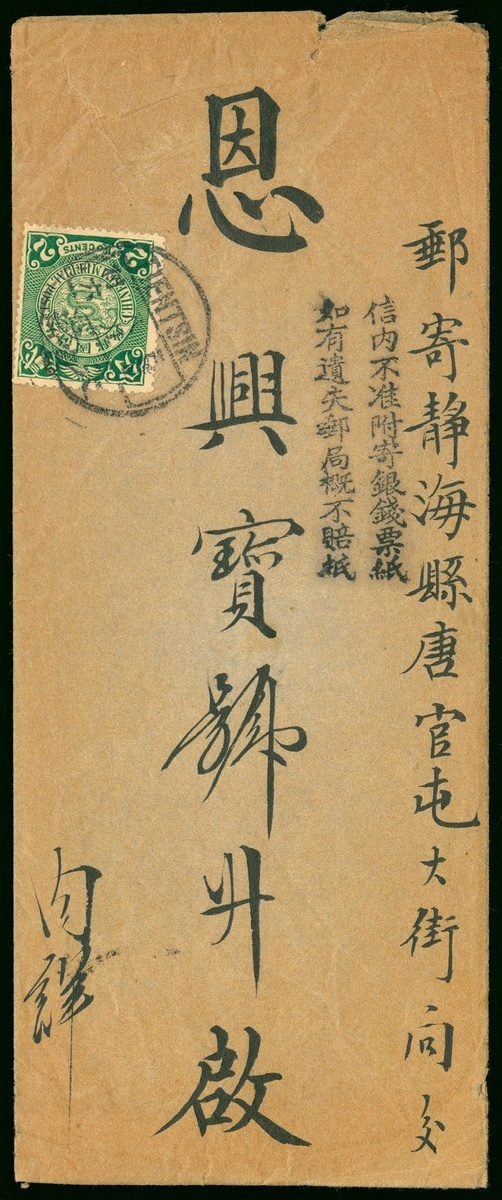 郵寄静海縣唐官屯大街向交
信内不准附寄銀錢票紙
如有遺失郵局概不賠紙
恩興寶號升啟
内詳
2
2
TWO CENTS
CHINESE IMPERIAL POST
TIENTSIN